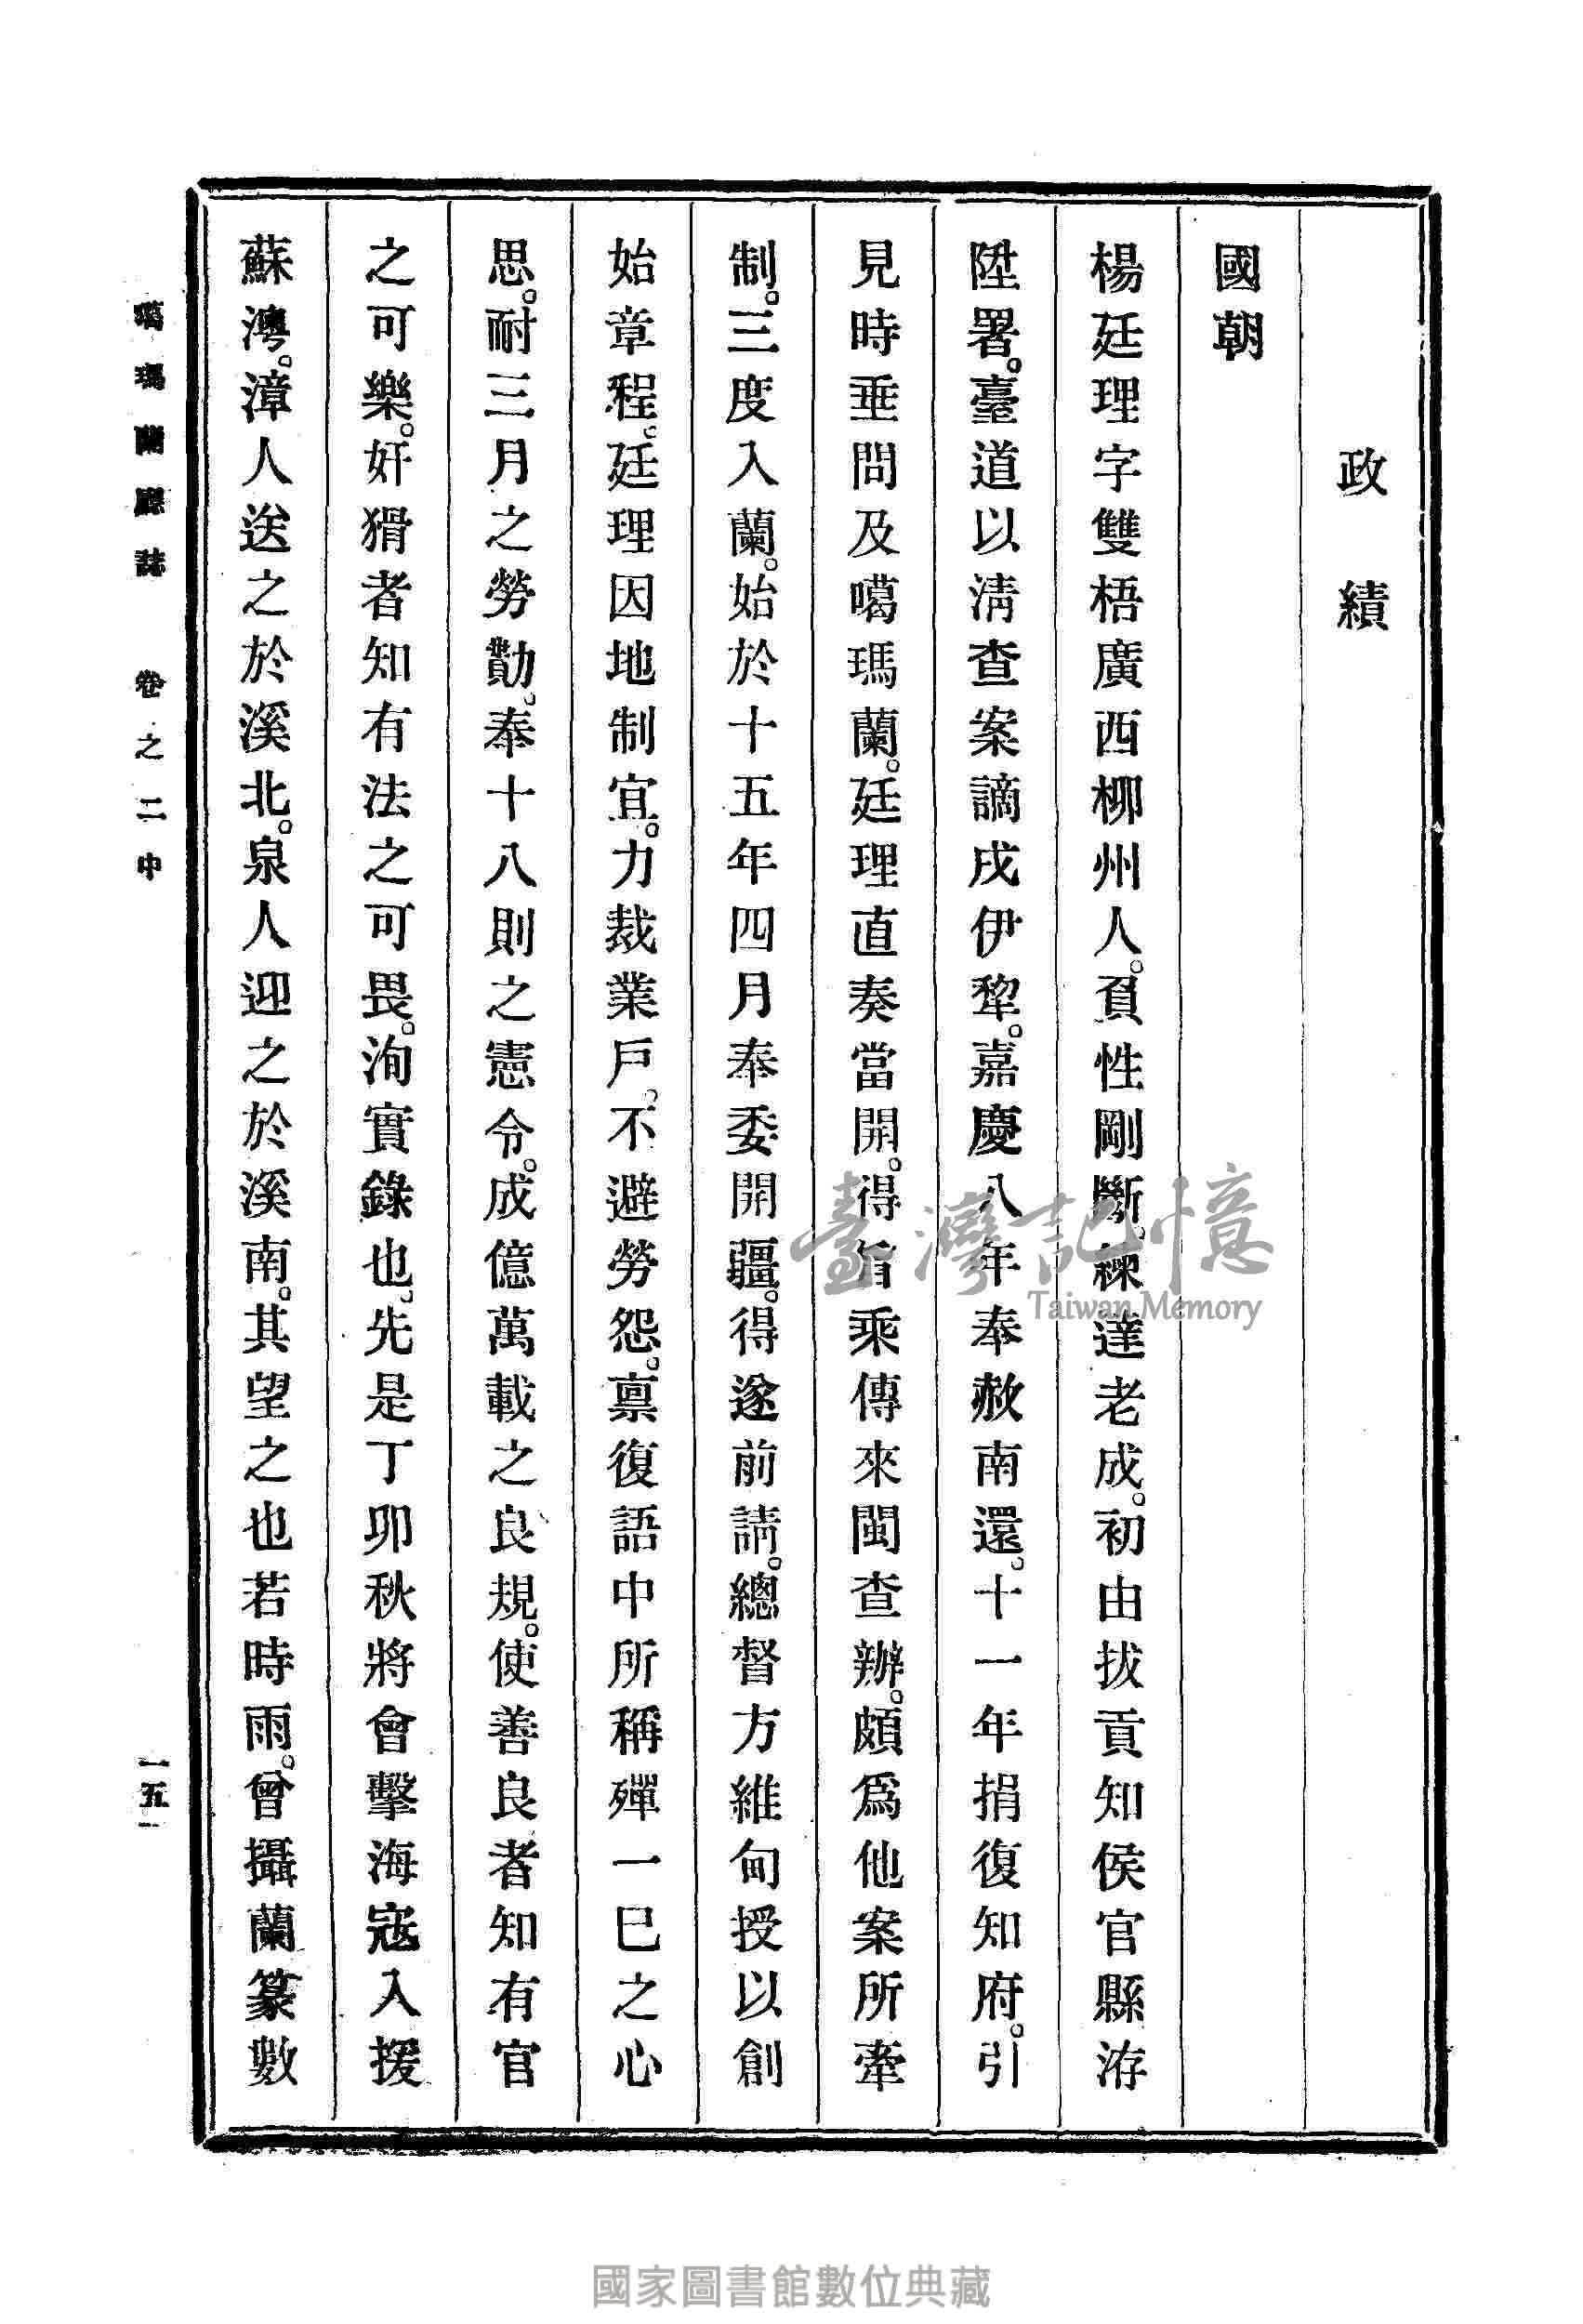 政績
國朝
楊廷理字雙梧廣西柳州人。負性剛斷。練達老成。初由拔貢知侯官縣洊
陞署。臺道以清查案謫戍伊犂。嘉慶八年奉赦南還。十一年捐復知府。引
見時垂問及噶瑪蘭。廷理直奏當開。得旨乘傳來閩查辦。頗爲他案所牽
制。三度入蘭。始於十五年四月奉委開疆。得遂前請。總督方維甸授以創
始章程。廷理因地制宜。力裁業戶。不避勞怨。禀復語中所稱殫一巳之心
思。耐三月之勞勩。奉十八則之憲令。成億萬載之良規。使善良者知有官
之可樂。奸猾者知有法之可畏。洵實錄也。先是丁卯秋將會擊海寇入援
蘇澳。漳人送之於溪北。泉人迎之於溪南。其望之也若時雨。曾攝蘭篆數
噶瑪蘭廳誌 卷之二中
一五一
臺灣記憶
Taiwan Memory
國家圖書館數位典藏